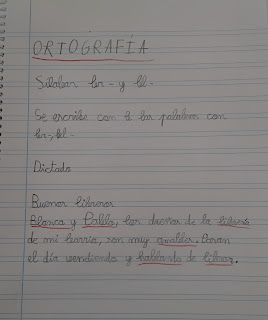 ORTOGRAFÍA
Sílabas br- y bl-
Se escriben con b las palabras con
br-, bl-
Dictado
Buenos libreros
Blanca y Pablo, los dueños de la librería
de mi barrio, son muy amables. Pasan
el día vendiendo y hablando de libros.